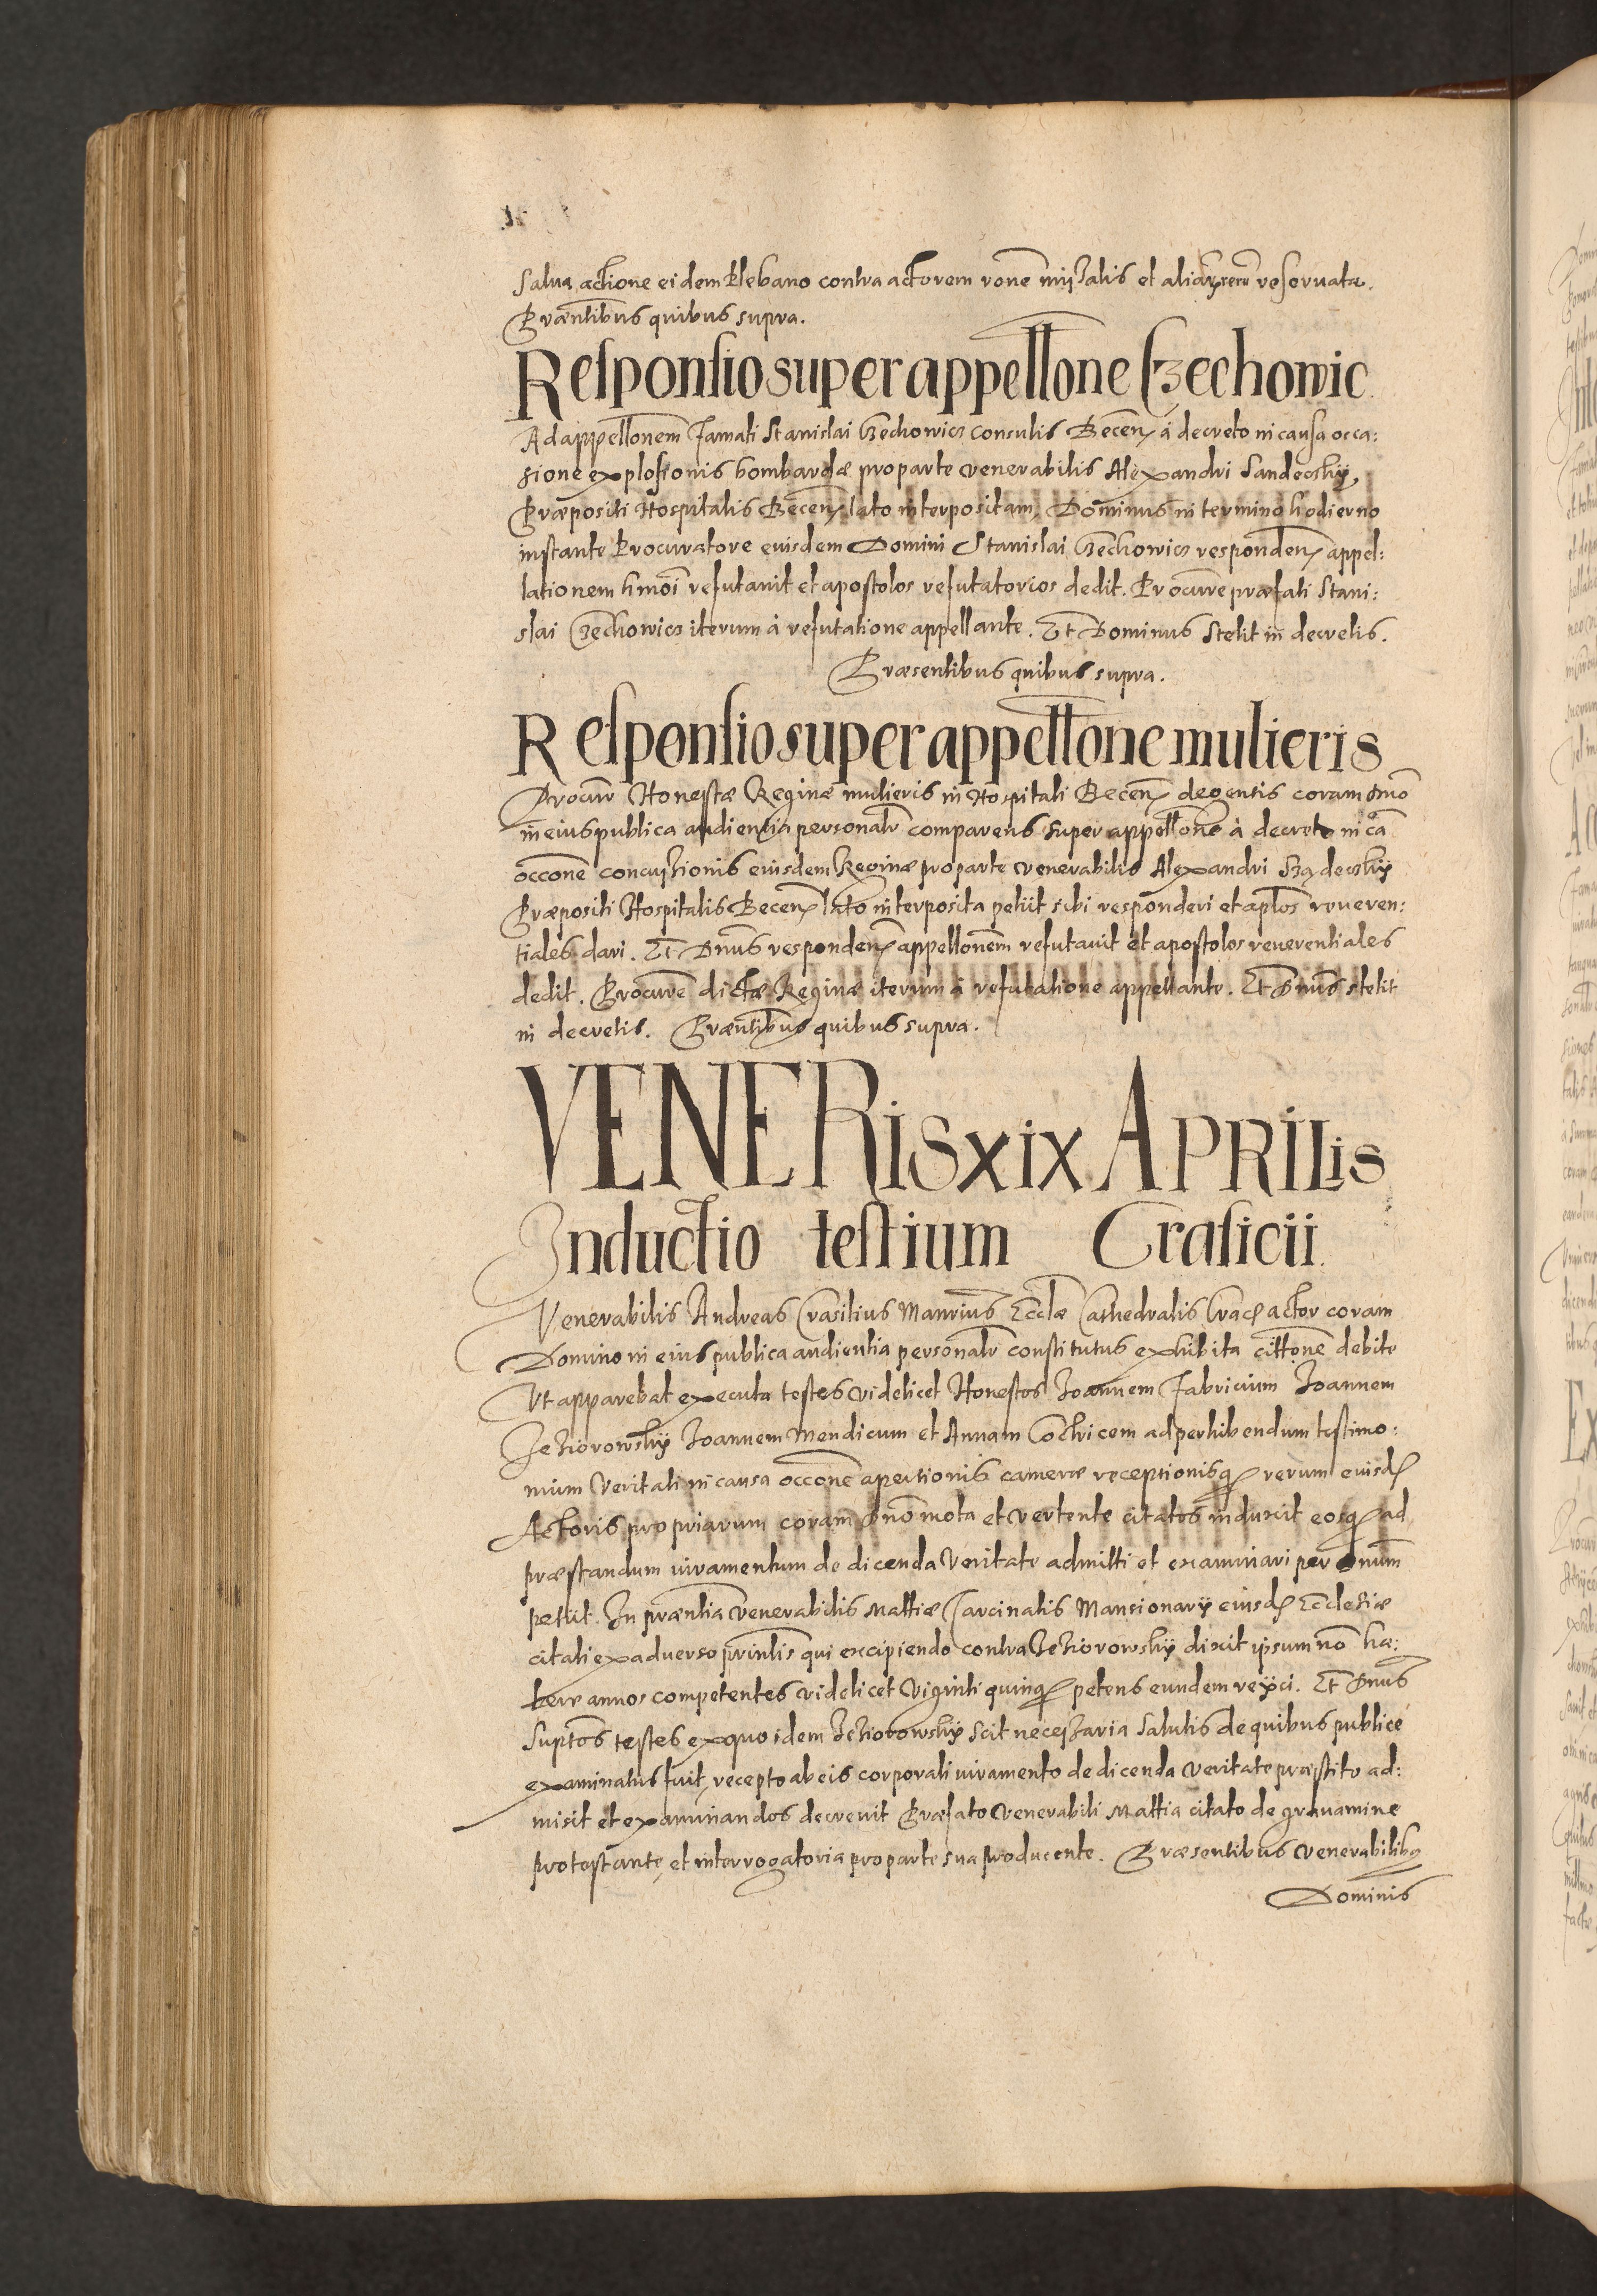 Salua actione eidem Plebano contra actorem rone missalis et aliar rerū reseruata.
Præntibus quibus supra.
Responsio super appellone Czechowic
Ad appellonem Famati Stanislai Czechowicz consulis Becen à decreto in causa occa:
sione explosionis bombardæ pro parte venerabilis Alexandri Sandeczky
Præpositi Hospitalis Becen lato interpositam, Dominus in termino hodierno
instante Procuratore eiusdem Domini Stanislai Czechowicz responden appel:
lationem hmōi refutauit et apostolos refutatorios dedit. Procure præfati Stani:
slai Czechowicz iterum à refutatione appellante. Et Dominus stetit in decretis.
Præsentibus quibus supra.
Responsio super appellone mulieris
Procur Honestæ Reginæ mulieris in Hospitali Becen degentis coram dno
in eius publica audientia personalr comparens super appellone à decreto in cā
occone concussionis eiusdem Reginæ pro parte venerabilis Alexandri Sządeczky
Præpositi Hospitalis Becen lato interposita petiit sibi responderi et aplos reueren:
tiales dari. Et Dnus responden appellonem refutauit et apostolos reuerentiales
dedit. Procure dictæ Reginæ iterum à refutatione appellante. Et Dnus stetit
in decretis. Præntibus quibus supra.
VENERIS XIX APRILIS
Inductio testium Crasicii
Venerabilis Andreas Crasitius Manrius Ecclæ Cathedralis Crac actor coram
Domino in eius publica audientia personalr constitutus exhibita cittone debite
Vt apparebat executa testes videlicet Honestos Ioannem Fabricium Ioannem
Jeziorowsky Ioannem Mendicum et Annam Coctricem ad perhibendum testimo:
nium veritati in causa occone apertionis cameræ receptionisq rerum eiusd
Actoris propriarum coram Dno mota et vertente citatos induxit eosq ad
præstandum iuramentum de dicenda veritate admitti et examinari per Dnum
petiit. In præntia venerabilis Mattiæ Carcinalis Mansionarij eiusd Ecclesiæ
citati ex aduerso prinlis qui excipiendo contra Jeziorowsky dixit ipsum nō ha:
bere annos competentes videlicet viginti quinq petens eundem reijci. Et Dnus
Suptos testes ex quo idem Jeziorowsky scit necessaria salutis de quibus publice
examinatus fuit, recepto ab eis corporali iuramento de dicenda veritate præstito ad:
misit et examinandos decreuit Præfato venerabili Mattia citato de grauamine
protestante, et interrogatoria pro parte sua producente. Præsentibus venerabilibꝰ
Dominis